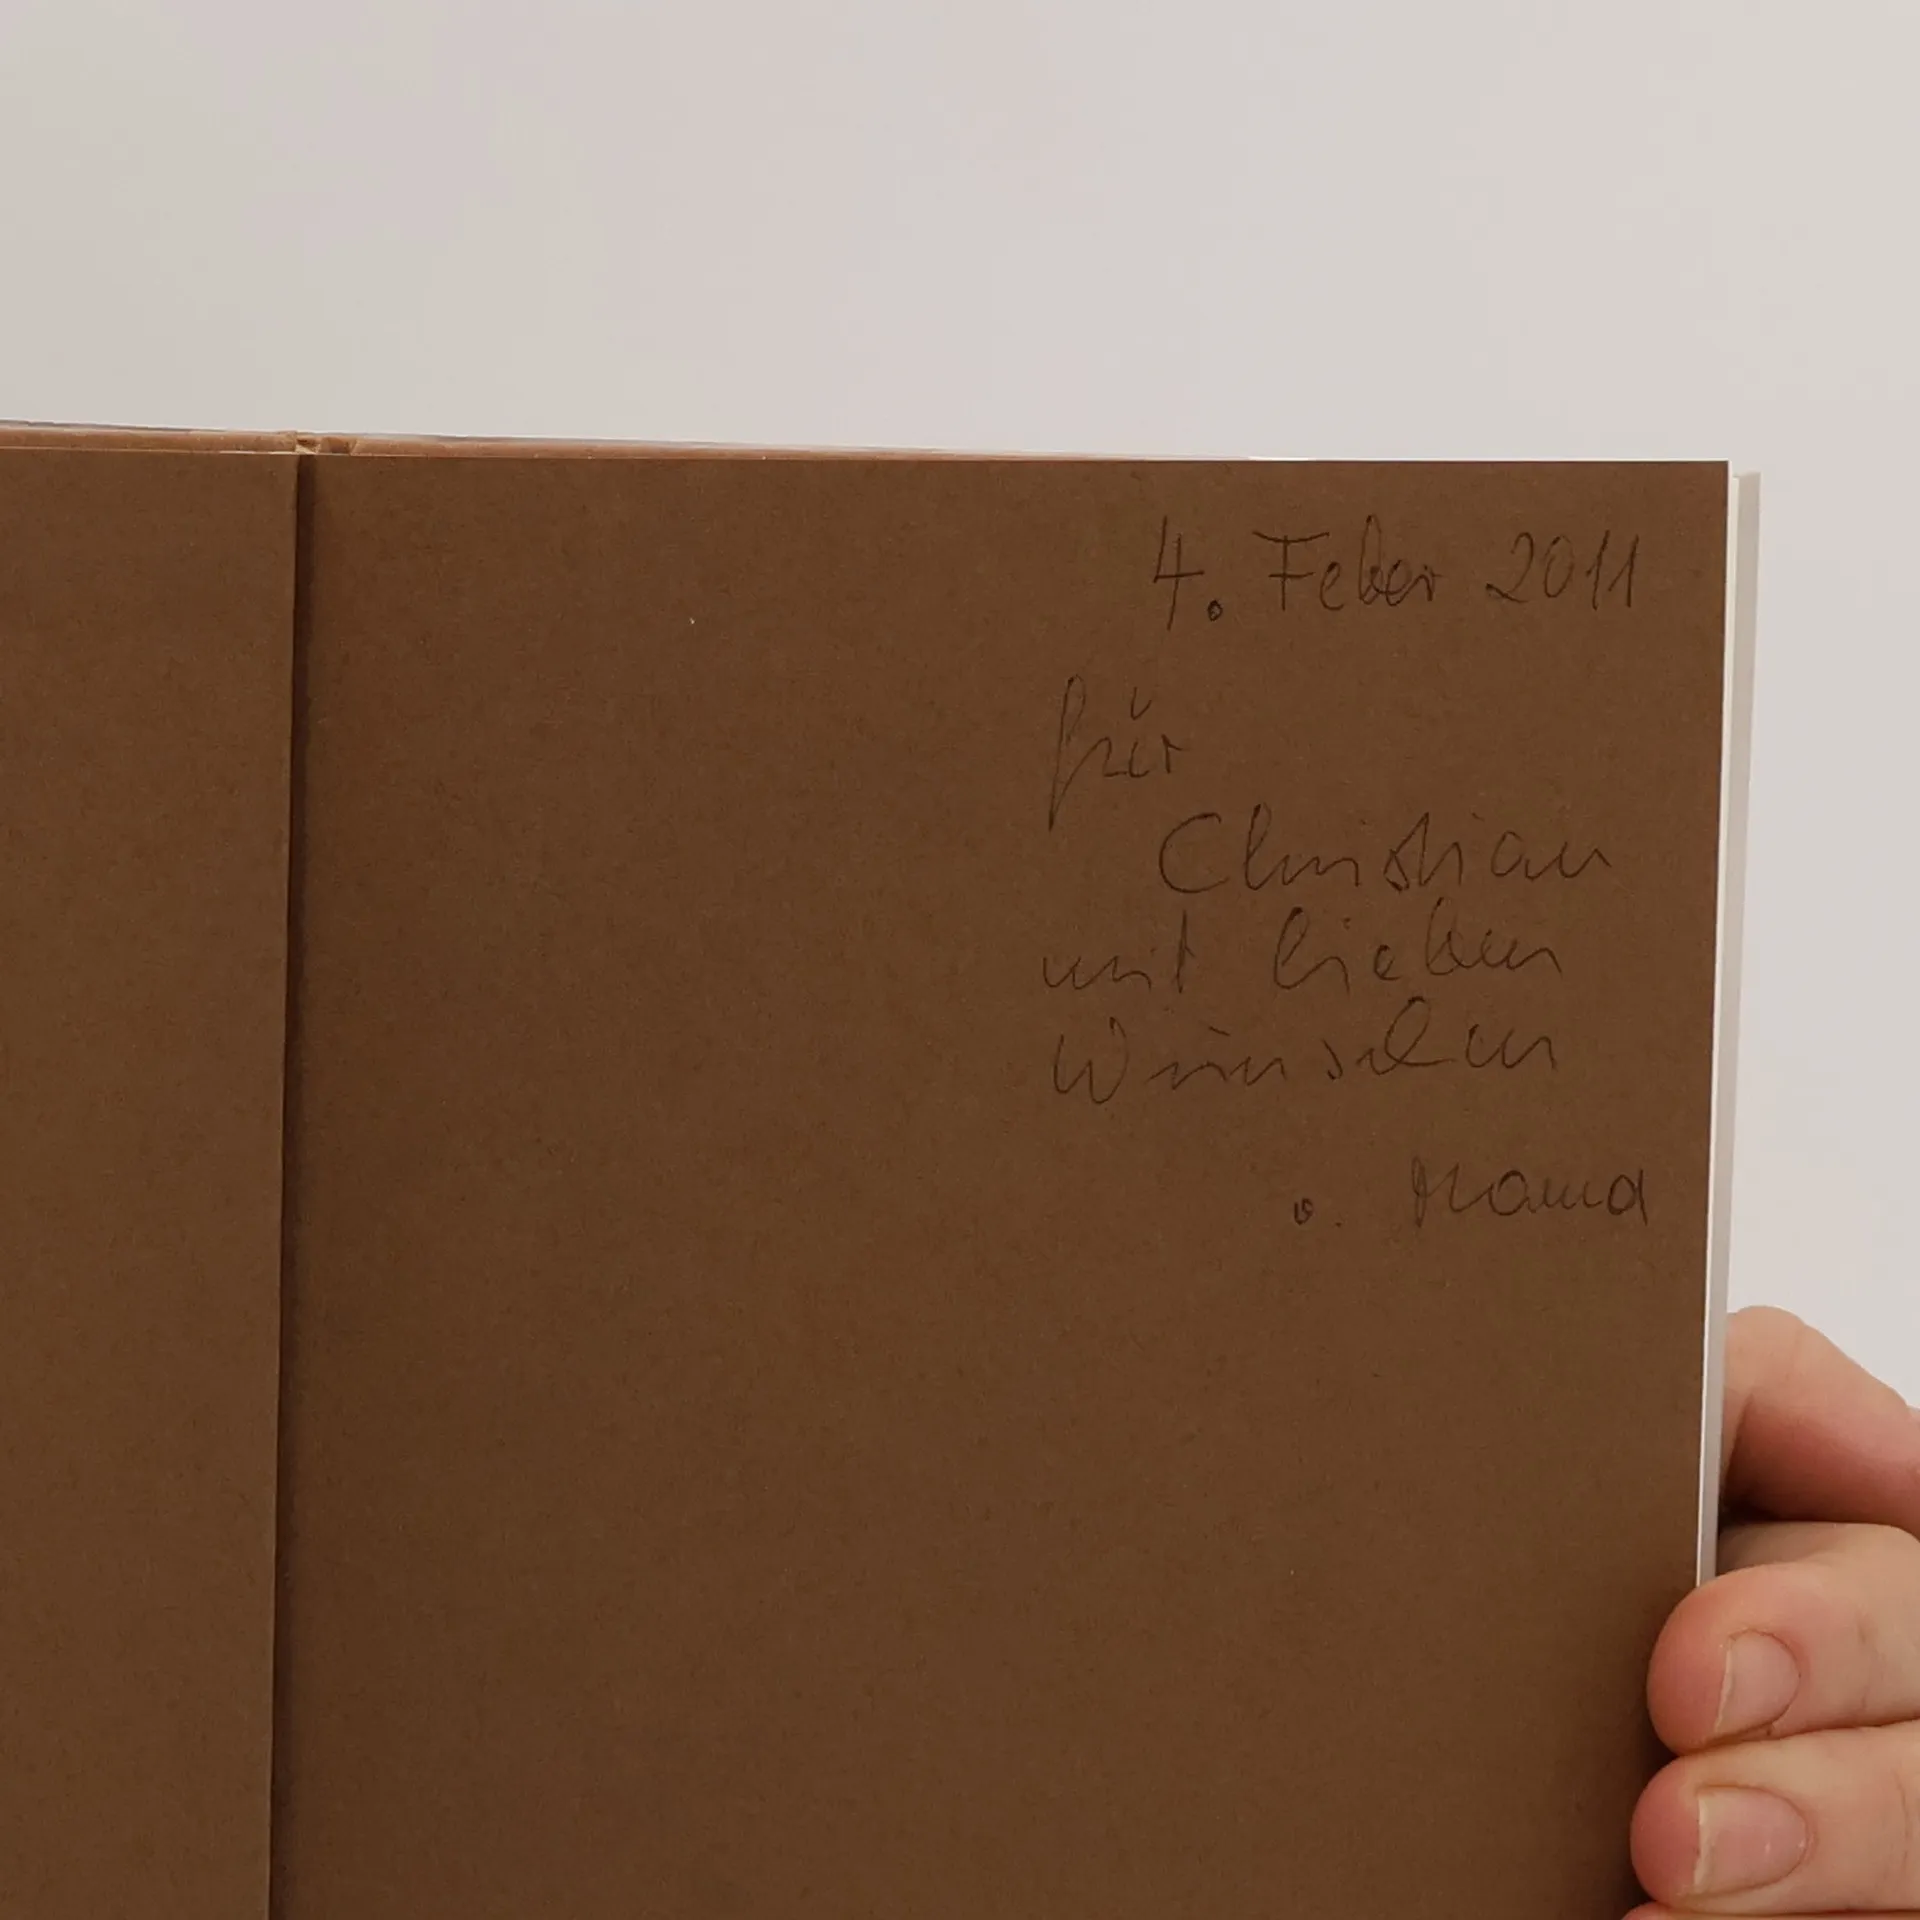 4. Feber 2011
für
Christian
mit lieben
Wünschen
v. Mama